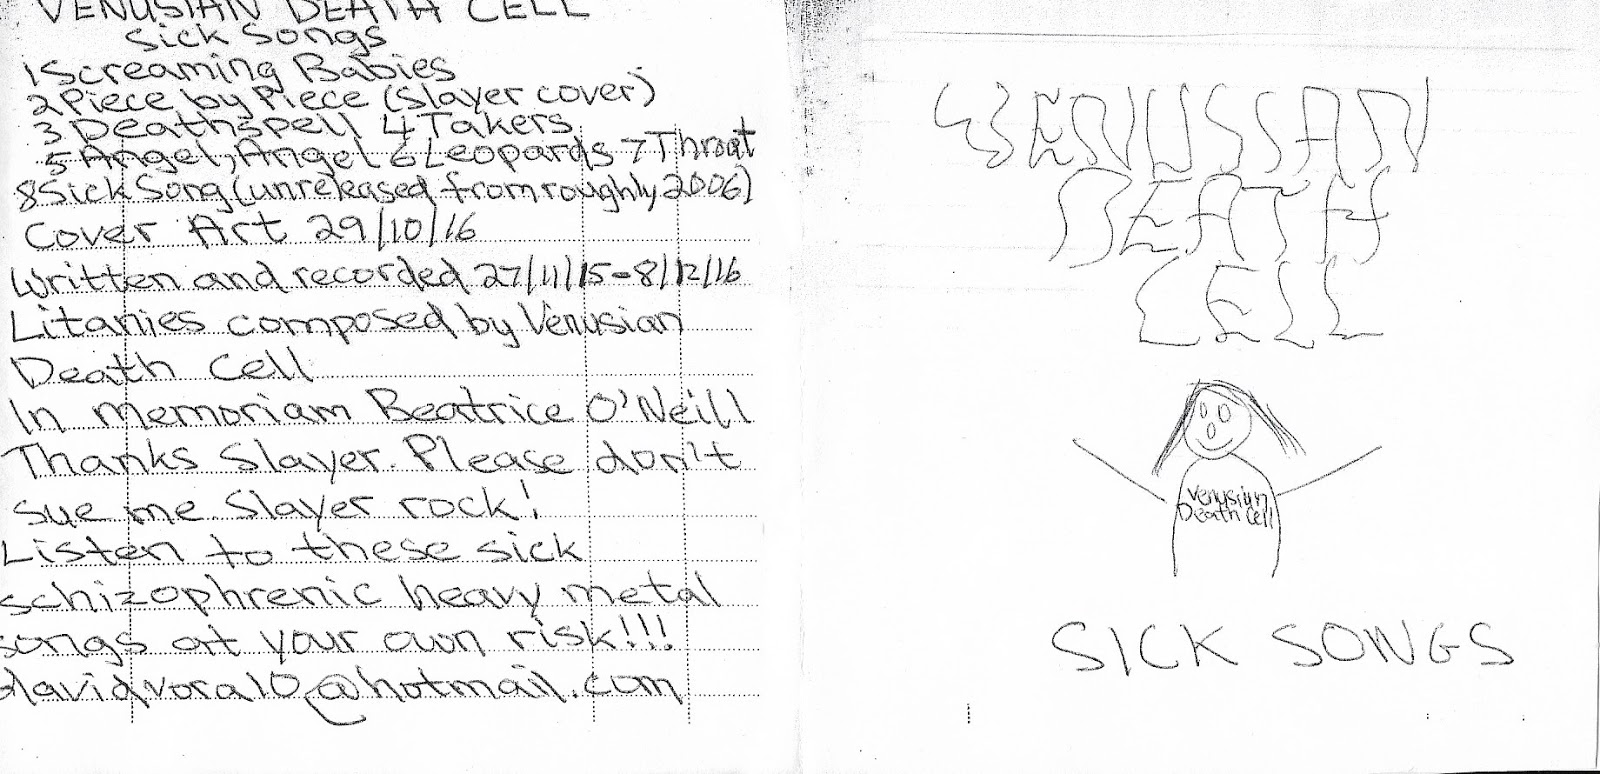 VENUSIAN DEATH CELL
Sick Songs
1 Screaming Babies
2 Piece by Piece (Slayer cover)
3 Deathspell 4 Takers
5 Angel, Angel 6 Leopards 7 Throat
8 Sick Song (unreleased from roughly 2006)
Cover Art 29/10/16
Written and recorded 27/11/15-8/12/16
Litanies composed by Venusian
Death Cell
In memoriam Beatrice O'Neill
Thanks Slayer. Please don't
sue me Slayer rock!
Listen to these sick
schizophrenic heavy metal
songs at your own risk!!!
davidvora10@hotmail.com
VENUSIAN
DEATH
CELL
Venusian
Death Cell
SICK SONGS